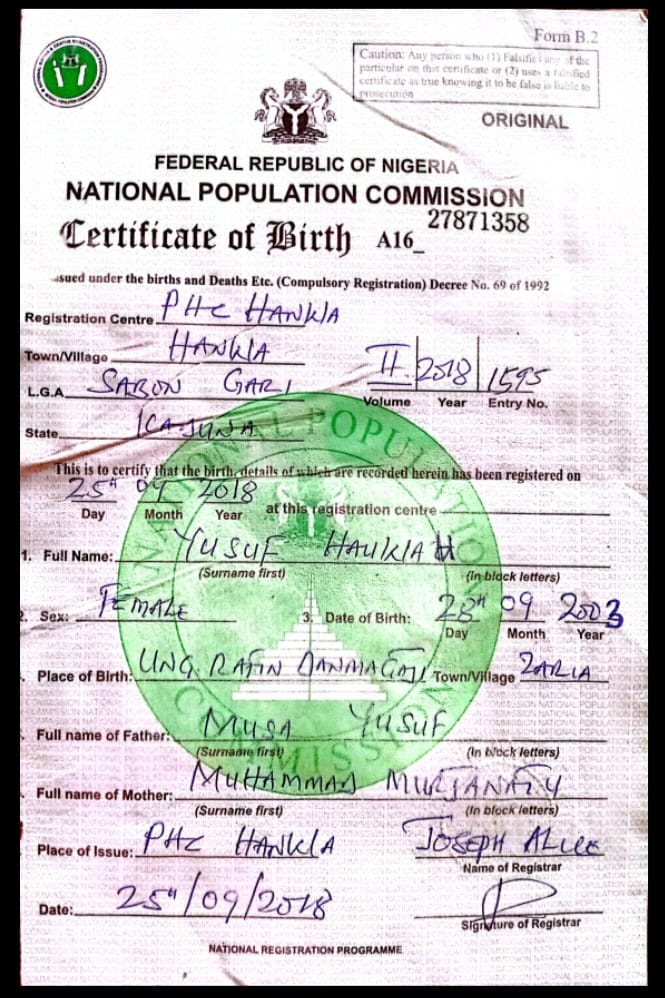 Form B.2
Caution: Any person who (1) Falsifies any of the
particular on this certificate or (2) uses a falsified
certificate as true knowing it to be false is liable to
prosecution
ORIGINAL
FEDERAL REPUBLIC OF NIGERIA
NATIONAL POPULATION COMMISSION
Certificate of Birth A16_ 27871358
ssued under the births and Deaths Etc. (Compulsory Registration) Decree No. 69 of 1992
Registration Centre PHC HANKIA
Town/Village HANKIA
II 2018 1595
L.G.A. SABON GARI
Volume Year Entry No.
State KADUNA
This is to certify that the birth, details of which are recorded herein has been registered on
25th 09 2018 at this registration centre
Day Month Year
1. Full Name: YUSUF HAUKIAH
(Surname first) (In block letters)
2. Sex: FEMALE 3. Date of Birth: 28th 09 2003
Day Month Year
Place of Birth: UNG. RAFIN DANMAGAJI Town/Village ZARIA
Full name of Father: MUSA YUSUF
(Surname first) (In block letters)
Full name of Mother: MUHAMMAD MURJANATU
(Surname first) (In block letters)
Place of Issue: PHC HANKIA JOSEPH
Name of Registrar
Date: 25th/09/2018
Signature of Registrar
NATIONAL REGISTRATION PROGRAMME
NATIONAL POPULATION COMMISSION